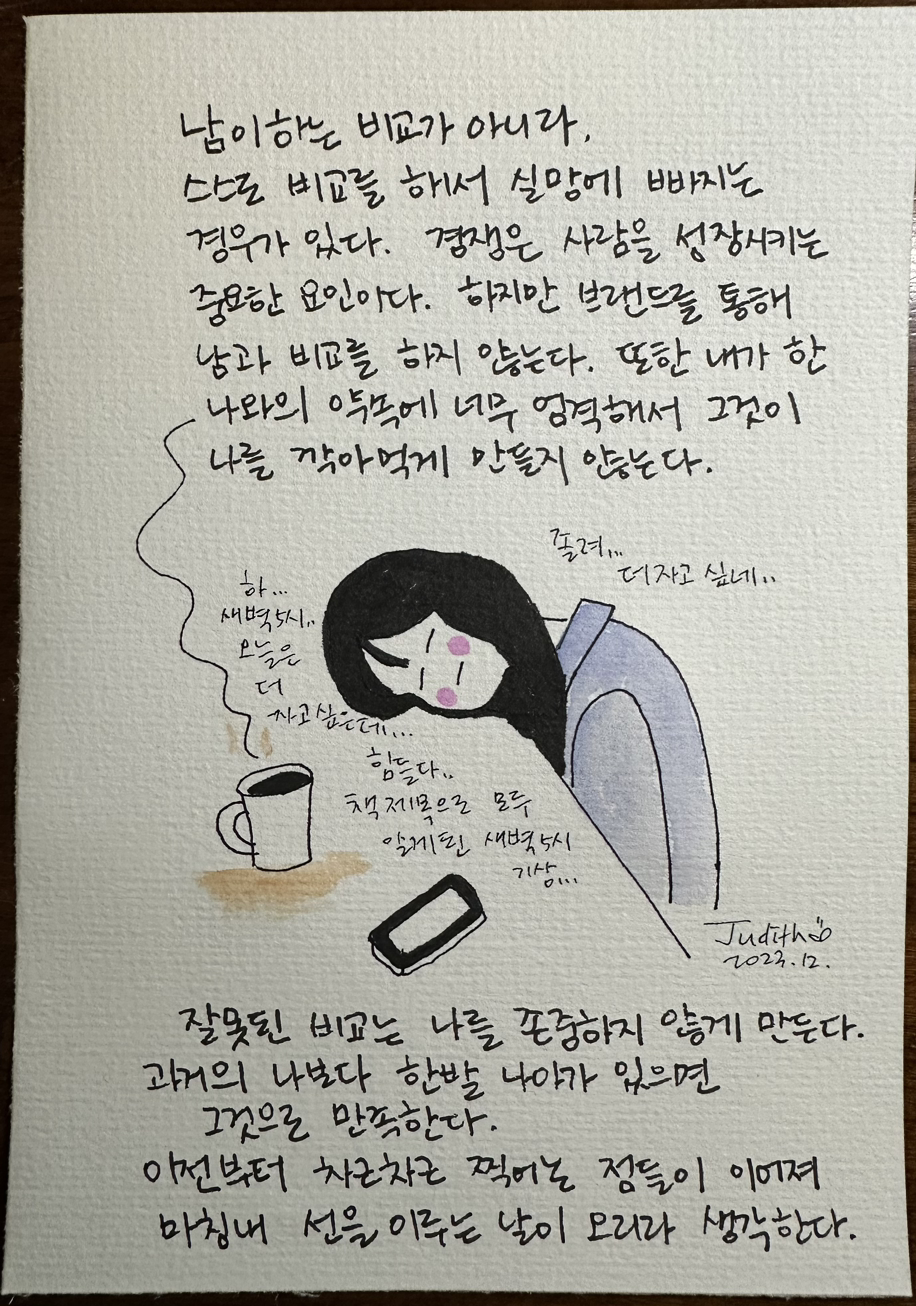 남이 하는 비교가 아니라,
스스로 비교를 해서 실망에 빠지는
경우가 있다. 경쟁은 사람을 성장시키는
중요한 요인이다. 하지만 브랜드를 통해
남과 비교를 하지 않는다. 또한 내가 한
나와의 약속에 너무 엄격해서 그것이
나를 깍아먹게 만들지 않는다.
졸려...
더 자고 싶네..
하...
새벽5시..
오늘은
더
자고 싶은데...
힘들다..
책 제목으로 모두
알게 된 새벽5시
기상...
Judith
2023.12.
잘못된 비교는 나를 존중하지 않게 만든다.
과거의 나보다 한발 나아가 있으면
그것으로 만족한다.
이전부터 차근차근 찍어논 점들이 이어져
마침내 선을 이루는 날이 오리라 생각한다.